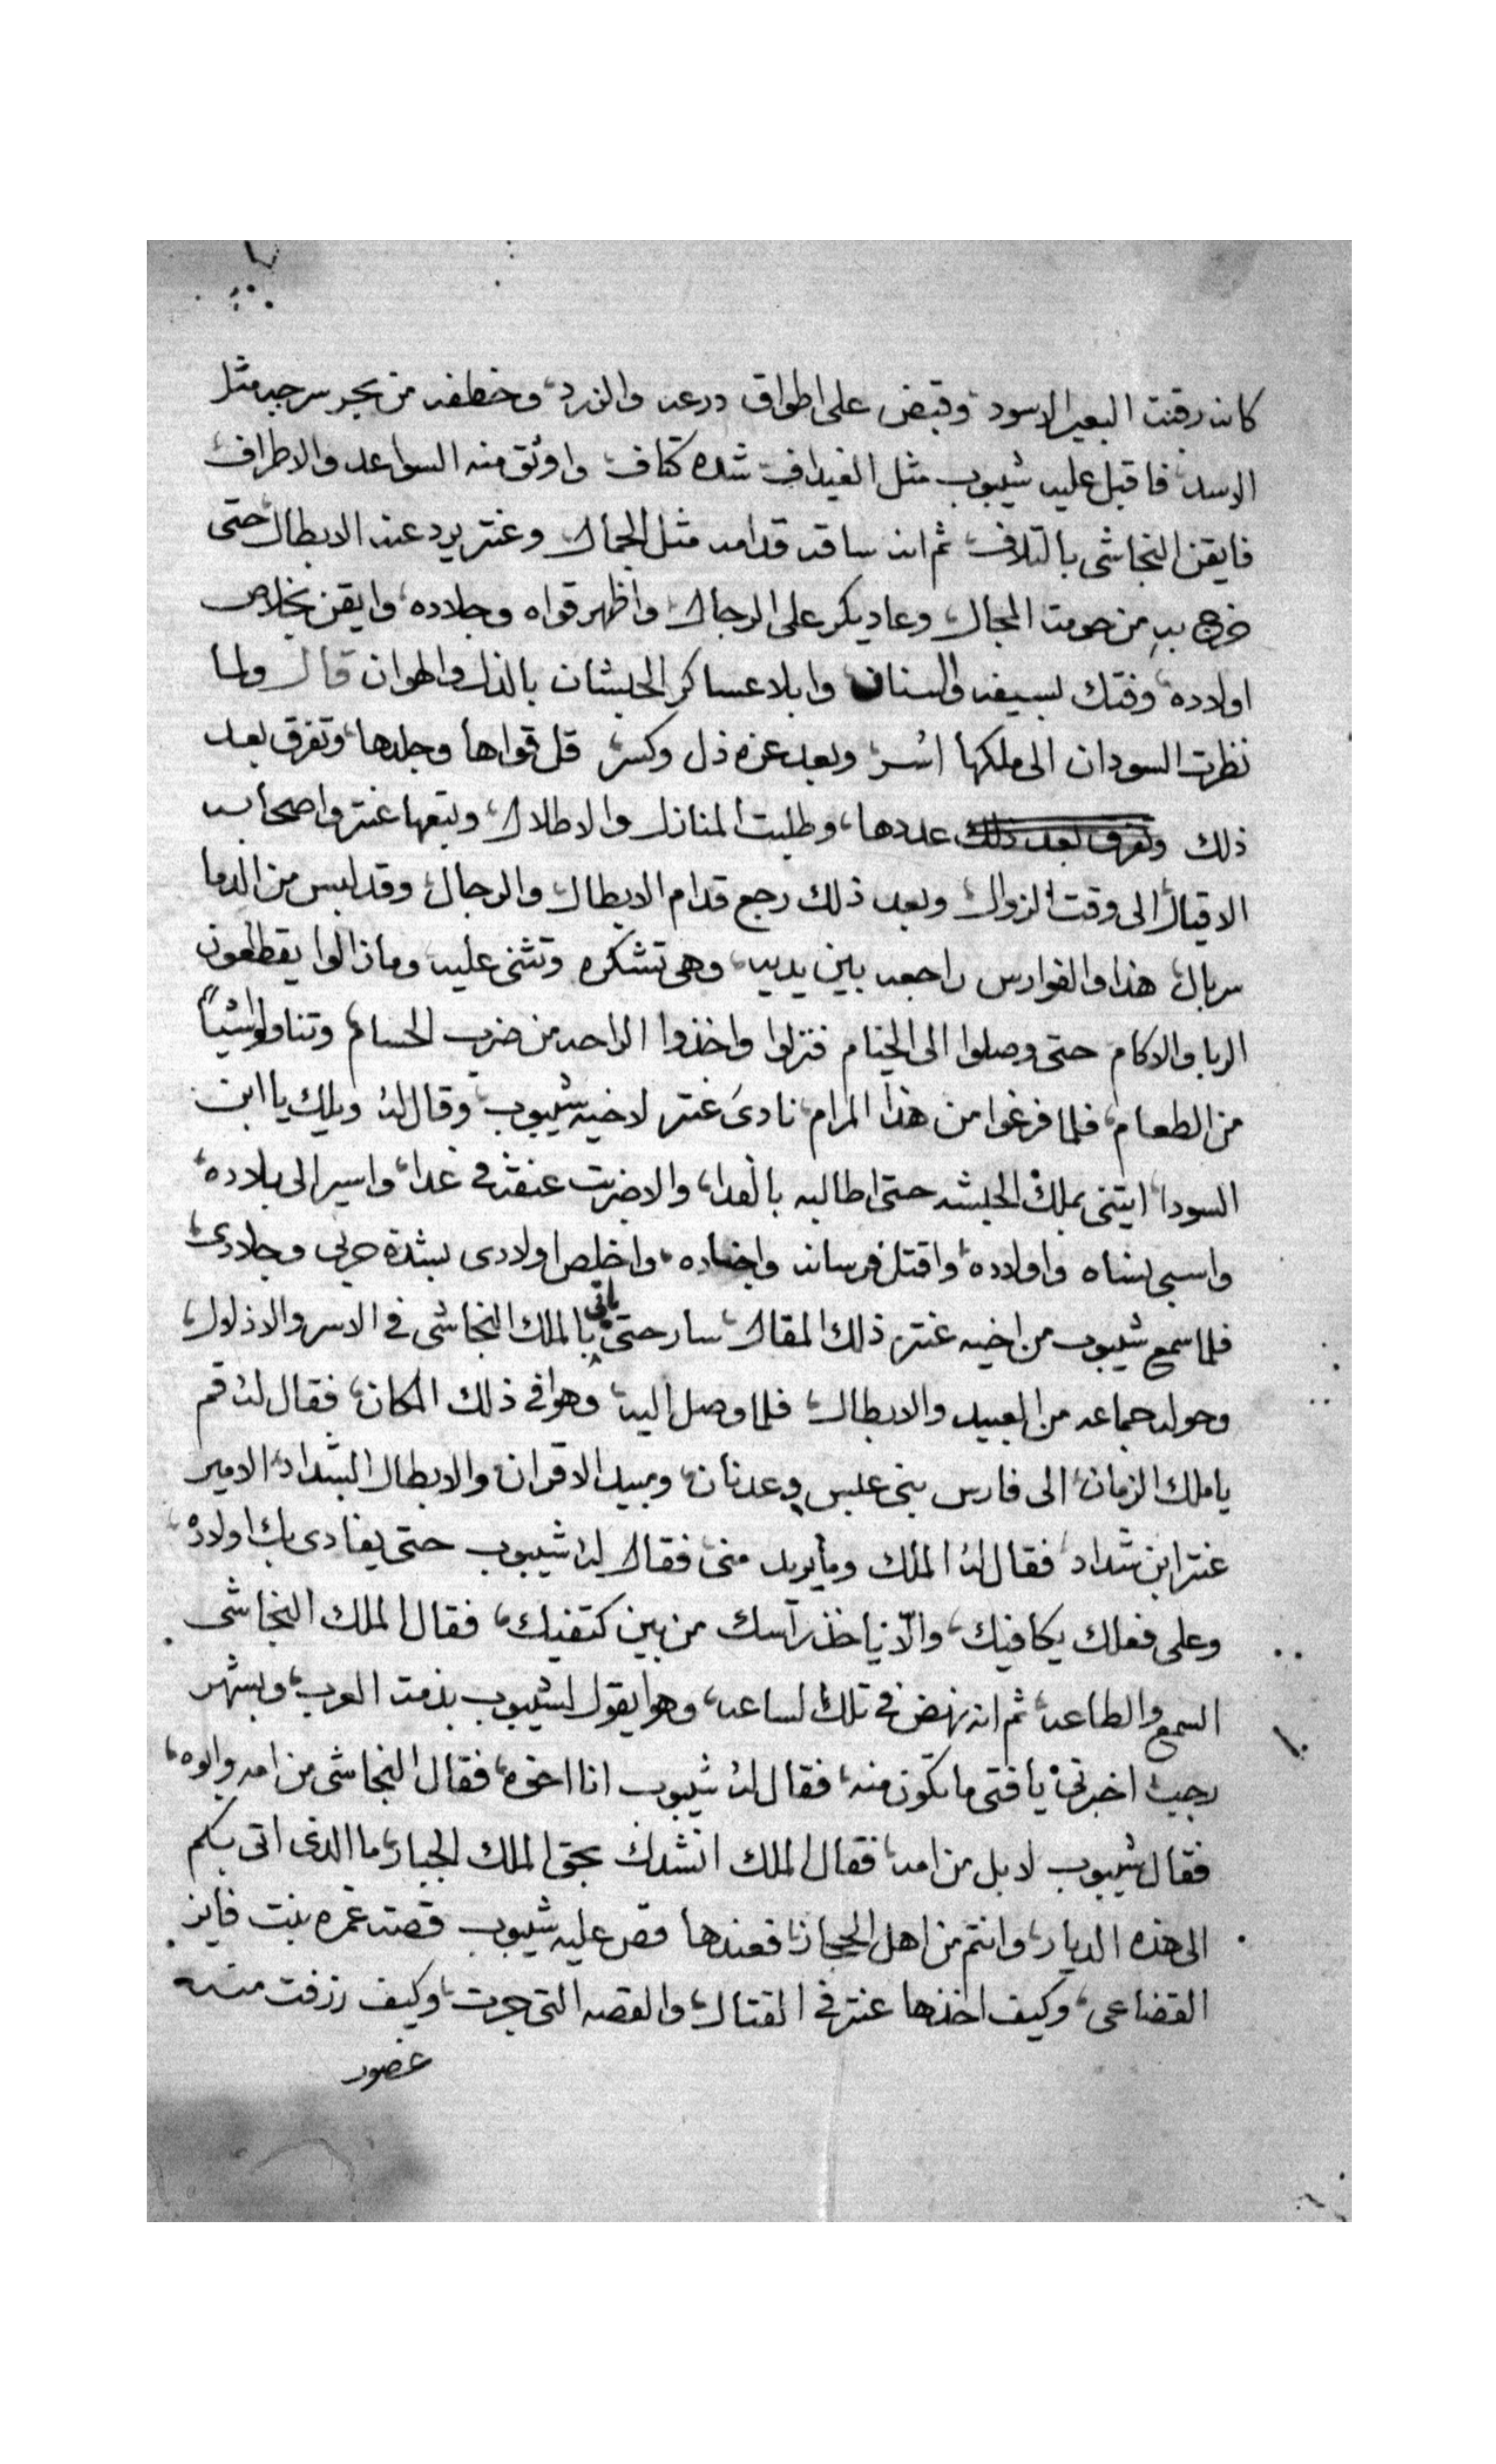 كانه رقبت البعير الاسود، وقبض على اطواق درعه والزرد، وخطفه من بحر سرجه مثل
الاسد، فاقبل عليه شيبوب مثل الغيداف شده كتاف، واوثق منه السواعد والاطراف،
فايقن النجاشى بالتلاف، ثم انه ساقه قدامه مثل الجمال، وعنتر يرد عنه الابطال، حتى
خرج به من حومت المجال، وعاد يكر على الرجال، واظهر قواه وجلاده، وايقن بخلاص
اولاده، وفتك بسيفه والسنان، وابلا عساكر الحبشان بالذل والهوان قال ولما
نظرت السودان الى ملكها اُسر، وبعد عزه ذل وكسر، قل قواها وجلدها، وتفرق بعد
ذلك وتفرق بعد ذلك عددها، وطلبت المنازل والاطلال، وتبعها عنتر واصحابه
الاقيال، الى وقت الزوال، وبعد ذلك رجع قدام الابطال، والرجال، وقد لبس من الدما
سربال، هذا والفوارس راجعه بين يديه، وهى تشكره وتثنى عليه، وما زالوا يقطعون
الربا والاكام حتى وصلوا الى الخيام فنزلوا واخذوا الراحه من ضرب الحسام، وتناولوا شيأً
من الطعام، فلما فرغوا من هذا المرام، نادىَ عنتر لاخيه شيبوب، وقال لهُ ويلك يا ابن
السودا، ايتنى بملك الحبشه حتى اطالبه بالفدا، والا ضربت عنقه فى غدا، واسير الى بلاده،
واسبى نساه واولاده، واقتل فرسانه واجناده، واخلص اولادى بشدة حربى وجلادى،
فلما سمع شيبوب من اخيه عنتر ذلك المقال، سار حتى ياتى بالملك النجاشى فى الاسر والاذلال،
وحوله جماعه من العبيد والابطال، فلما وصل اليه، وهوا فى ذلك المكان، فقال لهُ قم
يا ملك الزمان، الى فارس بنى عبس وعدنان، ومبيد الاقران، والابطال الشداد، الامير
عنتر ابن شداد، فقال لهُ الملك وما يريد منى، فقال لهُ شيبوب حتى يفادى بك اولادهُ،
وعلى فعلك يكافيك، والّا ياخذ رآسك من بين كتفيك، فقال الملك النجاشى
السمع والطاعه، ثم انه نهض فى تلك الساعه، وهوا يقول لشيبوب بذمت العرب، وبشهر
رجب، اخبرنى يا فتى ما تكون منه، فقال لهُ شيبوب انا اخوه، فقال النجاشى من امه وابوه،
فقال شيبوب لا بل من امه، فقال الملك انشدك بحق الملك الجبار، ما الذى اتى بكم
الى هذه الديار، وانتم من اهل الحجاز، فعندها قص عليه شيبوب قصت غمره بنت فايز
القضاعى، وكيف اخذها عنتر فى القتال، والقصه التى جرت، وكيف رزقت منه
غصوب